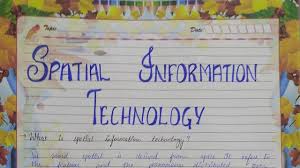 Topic
Date
SPATIAL INFORMATION
TECHNOLOGY
* What is spatial Information technology?
The word spatial is derived from space. It refer to
the features and the phenomena distributed